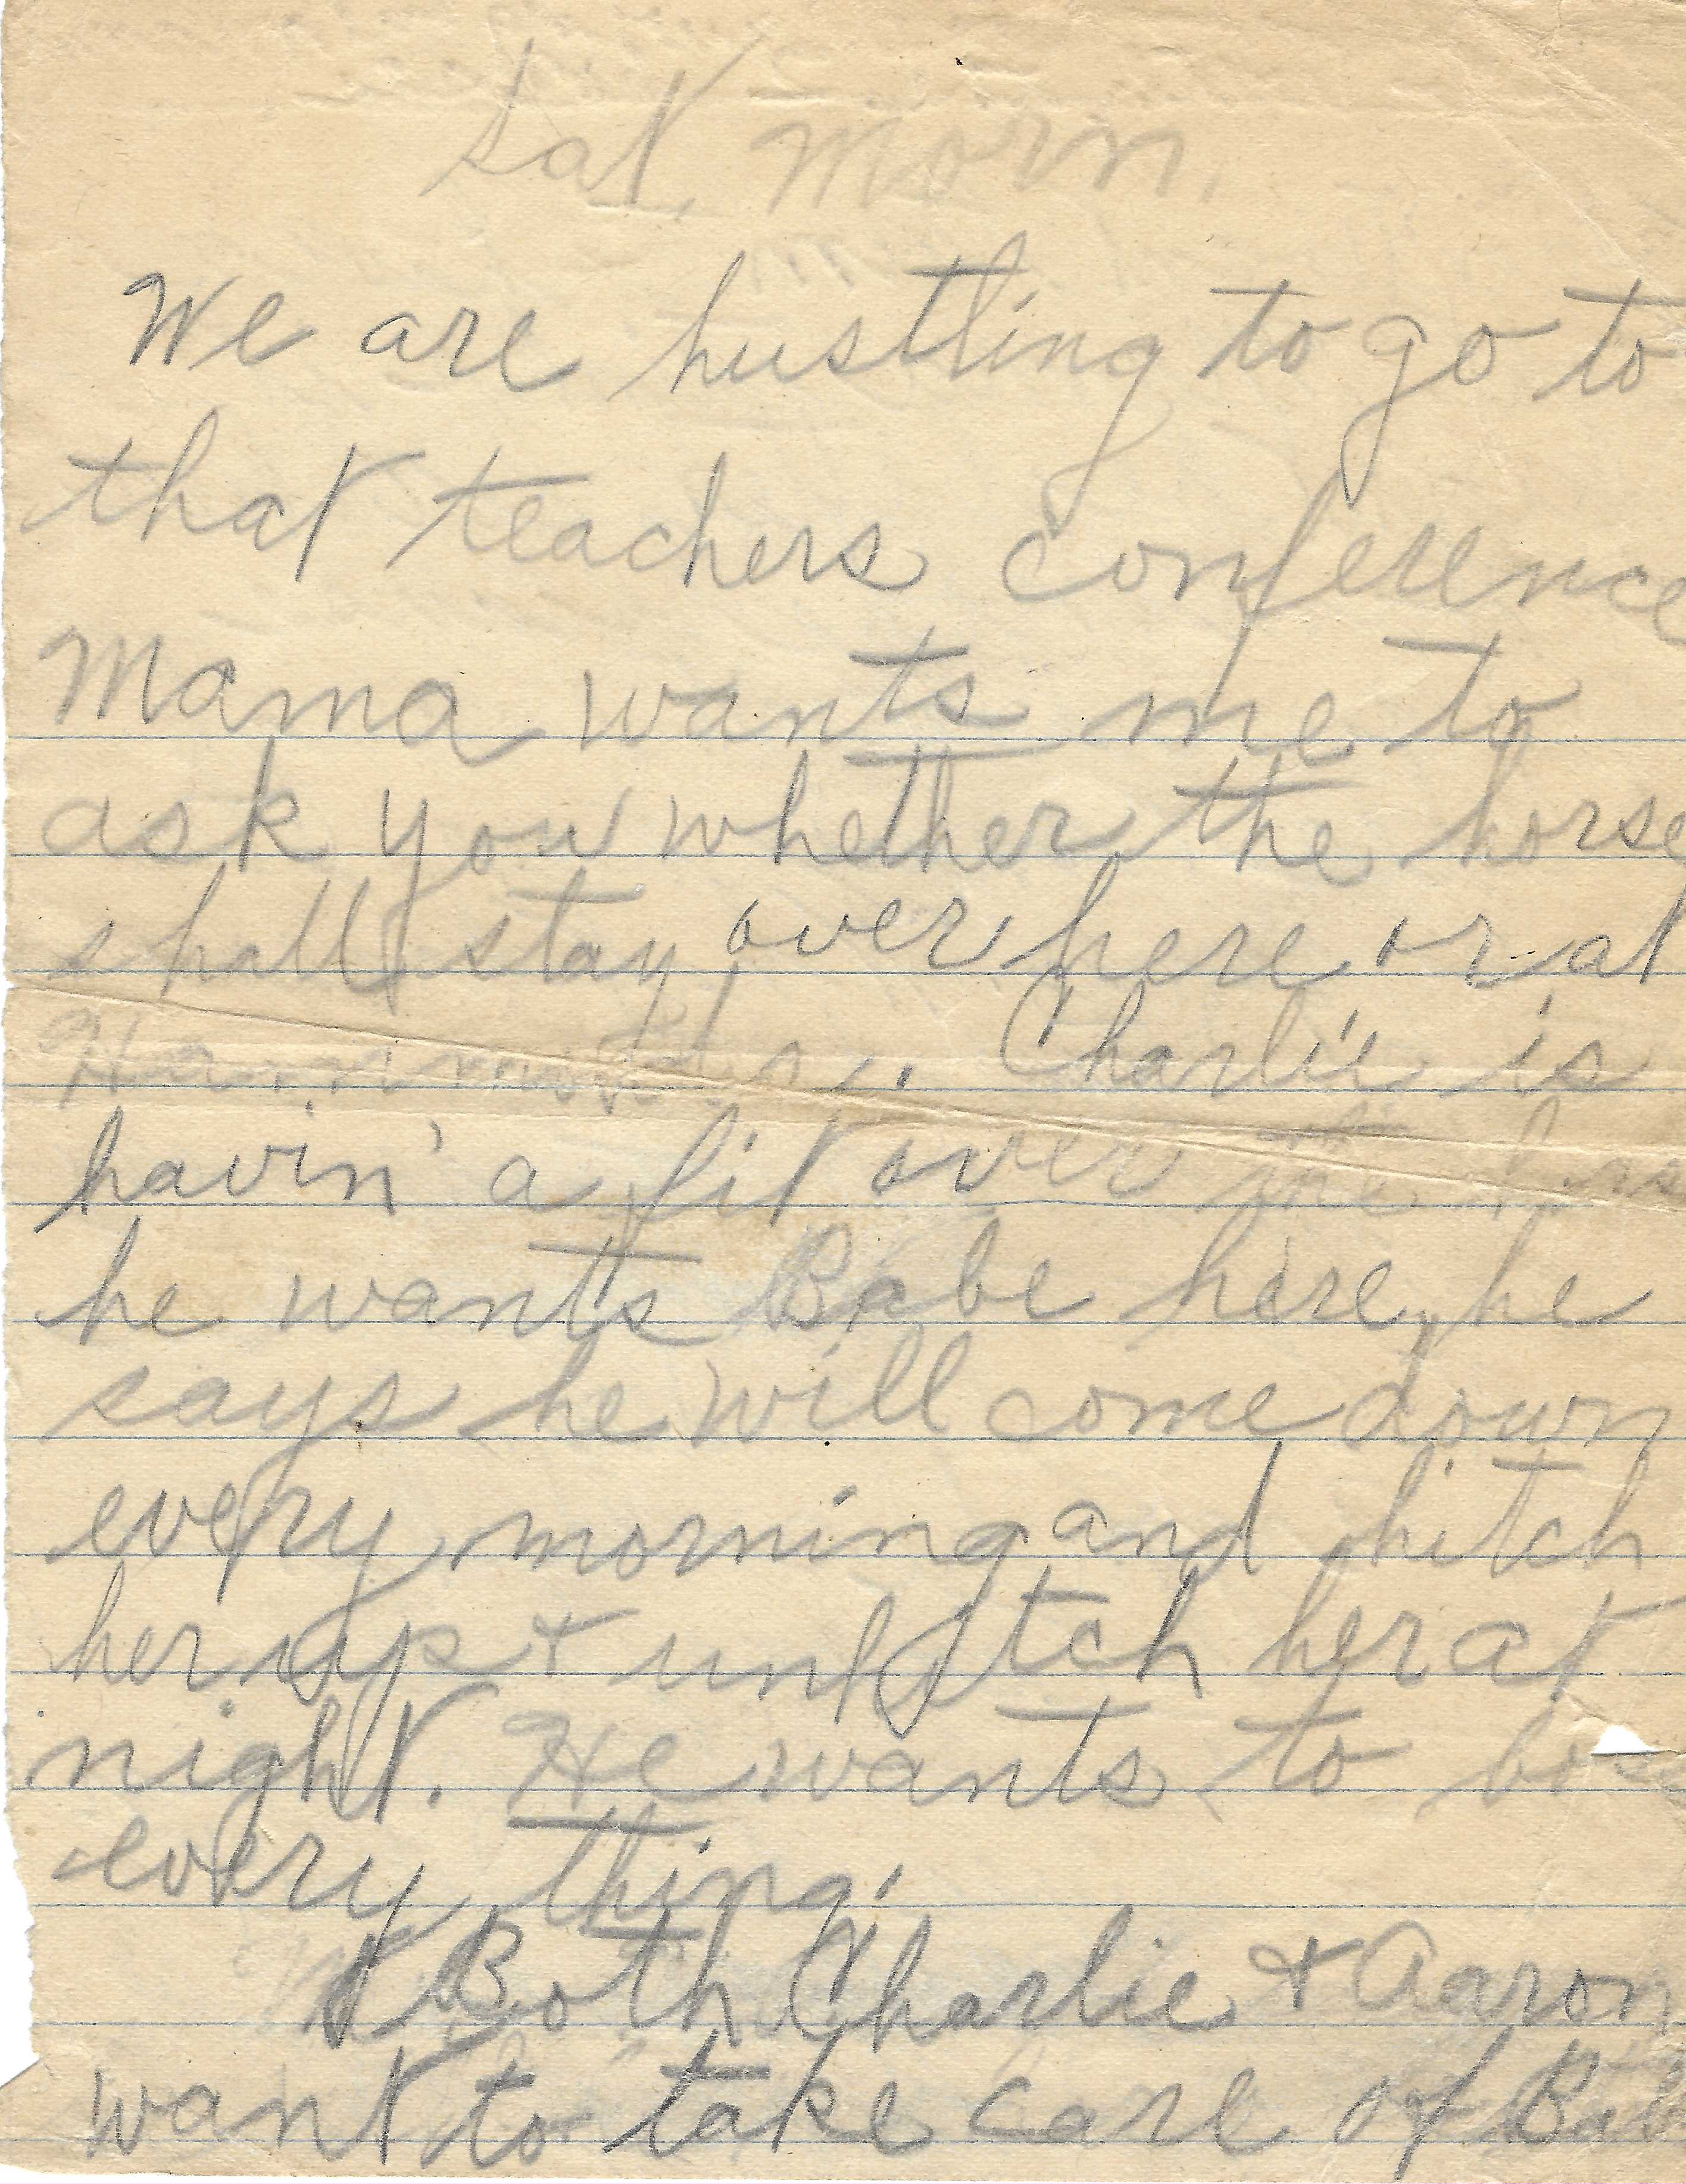 Sat, Morn,
We are hustling to go to
that teachers conference
Mama wants me to
ask you whether the horse
shall stay over here or at
Charlie is
havin' a fit over the
he wants Babe here, he
says he will come down
every morning and hitch
her up & unhitch her at
night. He wants to boss
every thing.
Both Charlie & Aaron
want to take care of Babe